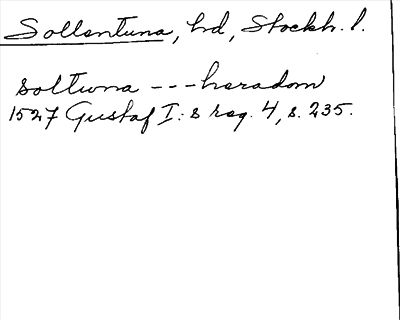 Sollentuna, hd, Stockh. l.
soltwna --- heradom
1527 Gustaf I:s reg. 4, s. 235.